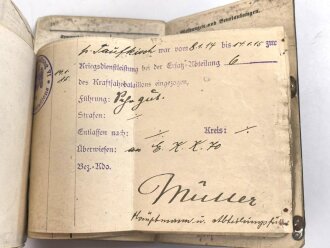 war vom 8.1.14 bis 14.1.15 zur
Kriegsdienstleistung bei der Ersatz-Abteilung 6
des Kraftfahrbataillons eingezogen.
Führung: Sehr gut.
Strafen: /
Entlassen nach: / Kreis: /
Überwiesen: an E. K. K. 70
Bez.-Kdo.
Müller
Hauptmann u. Abteilungsführer